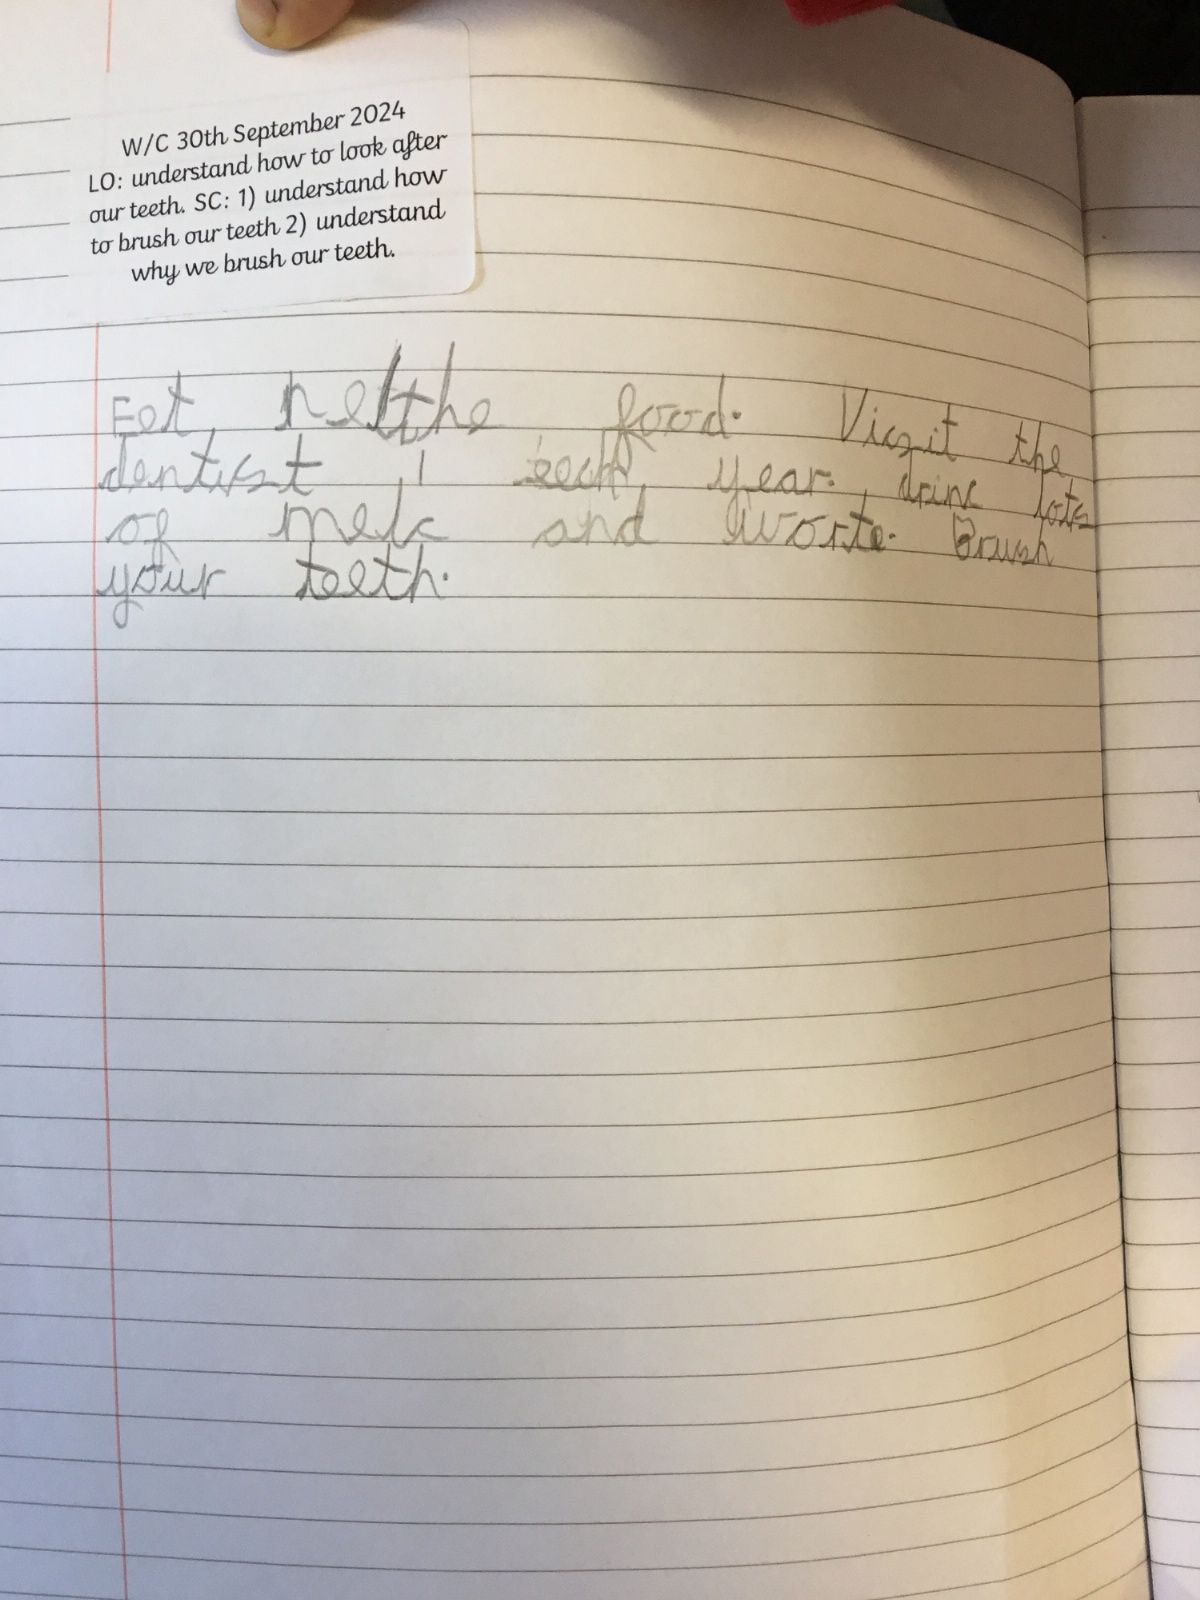 W/C 30th September 2024
LO: understand how to look after
our teeth. SC: 1) understand how
to brush our teeth 2) understand
why we brush our teeth.
Eet helthe food. Viszit the
dentist 1 each year. drinc lots
of melc and worte. Brush
your teeth.